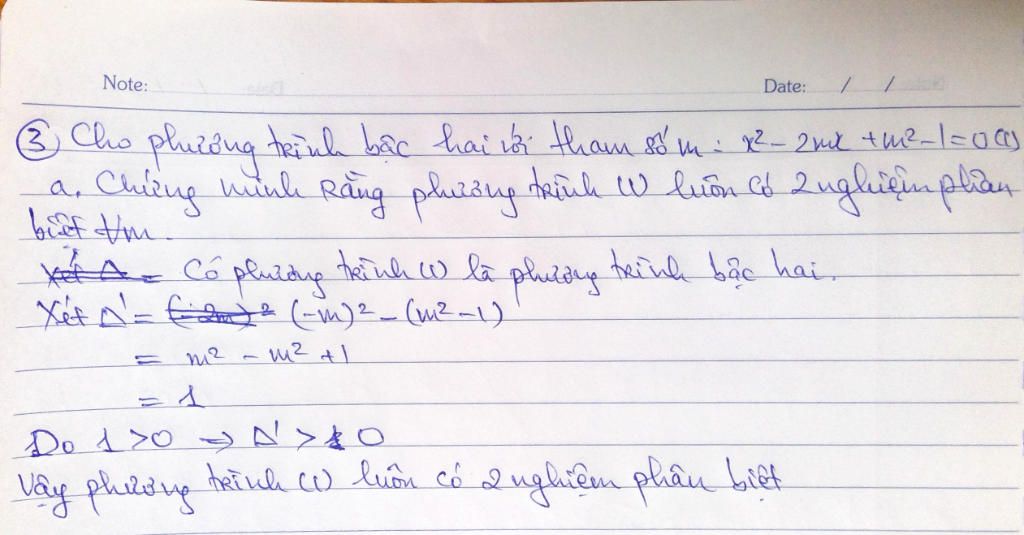 Note: Date: / /
③ Cho phương trình bậc hai với tham số m: x² - 2mx + m² - 1 = 0 (1)
a. Chứng minh Rằng phương trình (1) luôn có 2 nghiệm phân
biệt ∀m.
Xét Δ = Có phương trình (1) là phương trình bậc hai.
Xét Δ' = (-2m)² (-m)² - (m² - 1)
= m² - m² + 1
= 1
Do 1 > 0 ⇒ Δ' > 0
Vậy phương trình (1) luôn có 2 nghiệm phân biệt